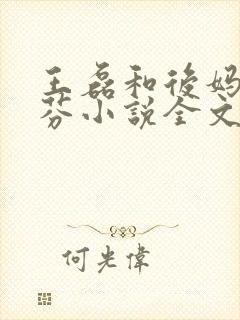 王磊和後妈
芬小説全文
何光偉